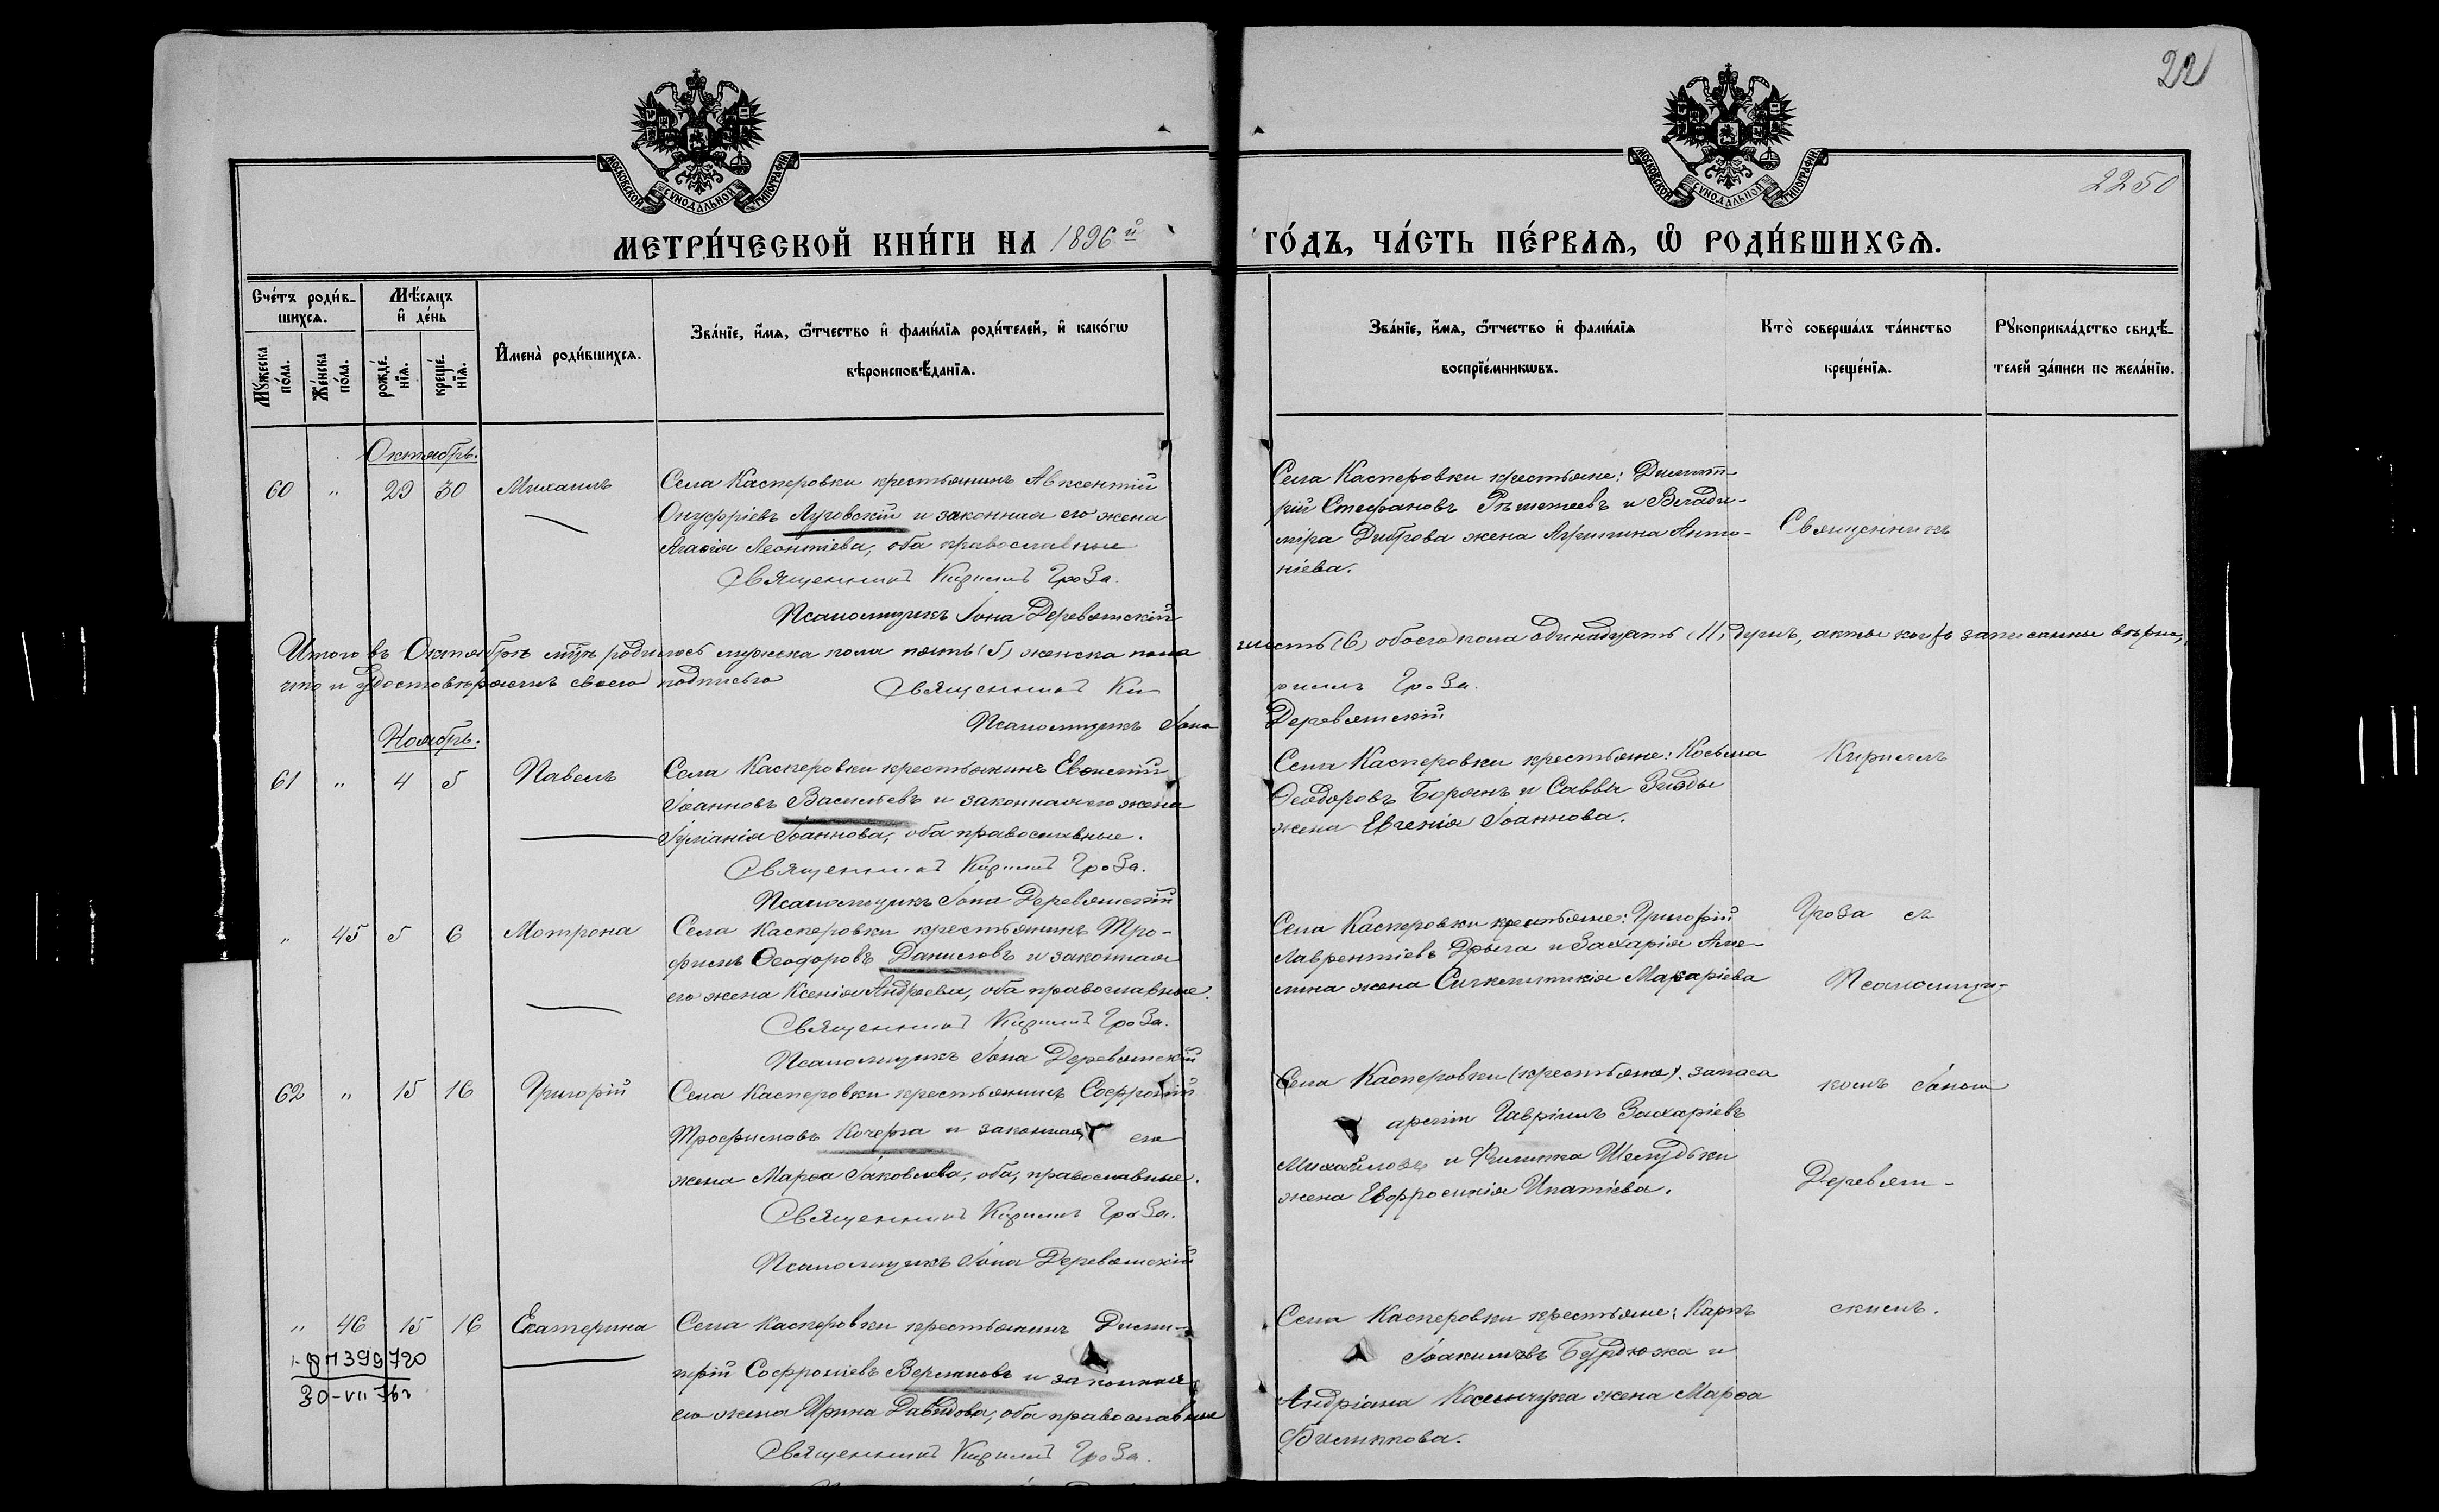 22
2250
МОСКОВСКОЙ СУНОДАЛЬНОЙ ТИПОГРАФІИ
МОСКОВСКОЙ СУНОДАЛЬНОЙ ТИПОГРАФІИ
МЕТРИ́ЧЕСКОЙ КНИ́ГИ НА 1896й
ГО́ДЪ, ЧА́СТЬ ПЕ́РВАѦ, Ѡ҆ РОДИ́ВШИХСѦ.
Сче́тъ роди́в-
шихсѧ.
Мѣ́сѧцъ
и҆ де́нь
Мꙋ́жеска по́ла.
Же́нска по́ла.
рожде́нїѧ.
креще́нїѧ.
И҆мена̀ роди́вшихсѧ.
Зва́нїе, и҆́мѧ, ѻ҆́тчество и҆ фами́лїѧ роди́телей, и҆ како́гѡ
вѣроисповѣ́данїѧ.
Зва́нїе, и҆́мѧ, ѻ҆́тчество и҆ фами́лїѧ
воспрїе́мникѡвъ.
Кто̀ соверша́лъ та́инство
креще́нїѧ.
Рꙋкоприкла́дство свидѣ́-
телей за́писи по жела́нїю.
Октябрь.
60 " 29 30 Михаилъ
Села Касперовки крестьянинъ Авксентій
Онуфріевъ Луговскій и законная его жена
Агаѳія Леонтіева, оба православные
Священникъ Кирилъ Гроза.
Псаломщикъ Іона Деревянскій
Села Касперовки крестьяне: Димит-
рій Стефановъ и Влади-
міра Диброва жена Агрипина Анто-
ніева.
Священникъ
Итого въ Октябрѣ мцѣ родилось мужеска пола пять (5) женска пола шесть (6) обоего пола одинадцать (11) душъ, акты коихъ записаны вѣрно,
что и удостовѣряемъ своею подписью
Священникъ Кирилъ Гроза.
Псаломщикъ Іона Деревянскій
Ноябрь.
61 " 4 5 Павелъ
Села Касперовки крестьянинъ Евѳимій
Іоанновъ Васильевъ и законная его жена
Іуліанія Іоаннова, оба православные.
Священникъ Кирилъ Гроза.
Псаломщикъ Іона Деревянскій
Села Касперовки крестьяне: Косьма
Ѳеодоровъ Боранъ и Саввы
жена Евгенія Іоаннова.
Кирилъ
" 45 5 6 Мотрона
Села Касперовки крестьянинъ Тро-
фимъ Ѳеодоровъ Даниловъ и законная
его жена Ксенія Андреева, оба православные.
Священникъ Кирилъ Гроза.
Псаломщикъ Іона Деревянскій
Села Касперовки крестьяне: Григорій
Лаврентіевъ Дрыга и Захарія
жена Синклитикія Макаріева
Гроза съ
Псаломщи-
62 " 15 16 Григорій
Села Касперовки крестьянинъ Софроній
Трофимовъ Кочерга и законная его
жена Марѳа Іаковлева, оба, православные.
Священникъ Кирилъ Гроза.
Псаломщикъ Іона Деревянскій
Села Касперовки (крестьяне). запаса
арміи Гавріилъ Захаріевъ
Михайловъ и Филиппа Шелудьки
жена Евфросинія Ипатіева.
комъ Іоною
Деревян-
" 46 15 16 Екатерина
Села Касперовки крестьянинъ Дими-
трій Софроніевъ и законная
его жена Ирина Давидова, оба православные
Священникъ Кирилъ Гроза.
Села Касперовки крестьяне: Карпъ
Іоакимовъ Бурдюжа и
Андріана Касьянчука жена Марѳа
Филиппова.
скимъ.
399720
30-VII